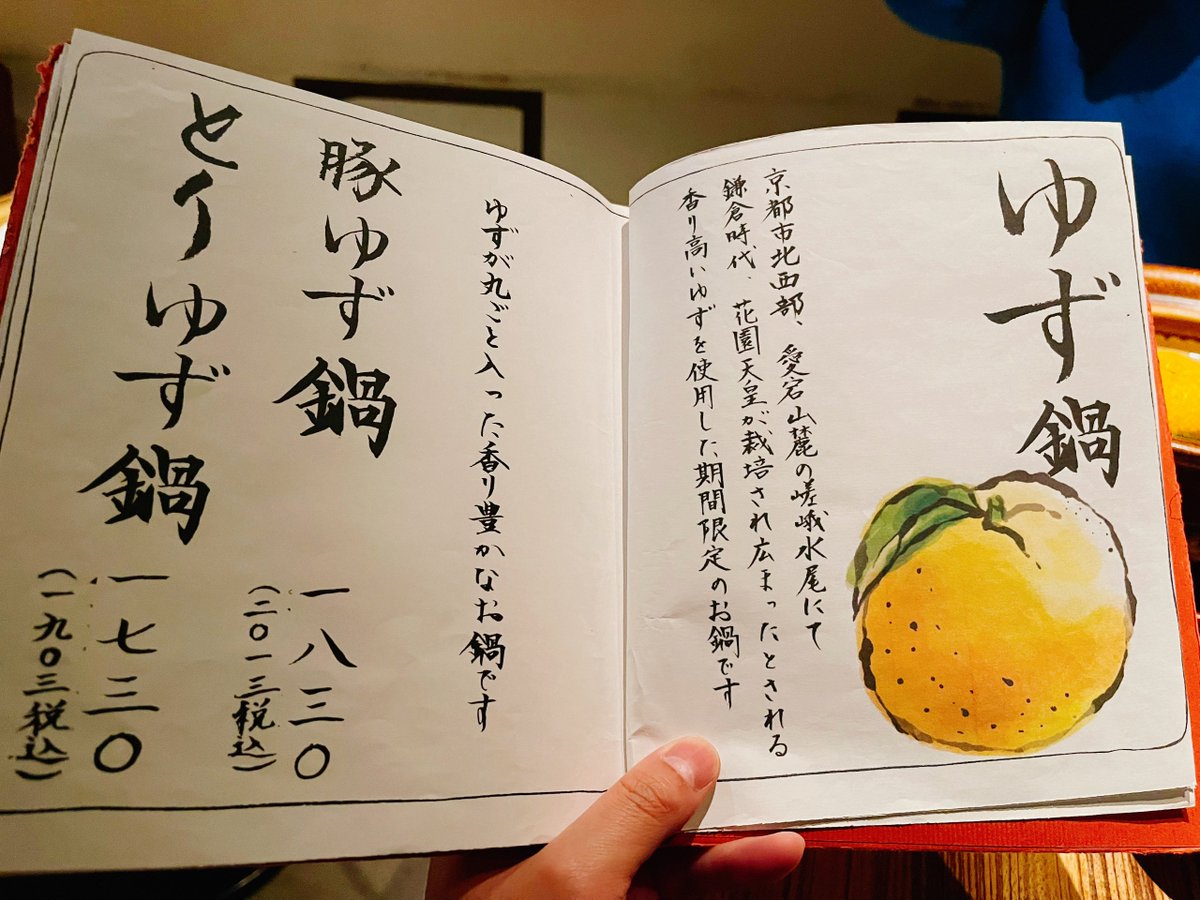 ゆず鍋
京都市北西部、愛宕山麓の嵯峨水尾にて
鎌倉時代、花園天皇が栽培され広まったとされる
香り高いゆずを使用した期間限定のお鍋です
ゆずが丸ごと入った香り豊かなお鍋です
豚ゆず鍋
一八三〇
(二〇一三税込)
とりゆず鍋
一七三〇
(一九〇三税込)